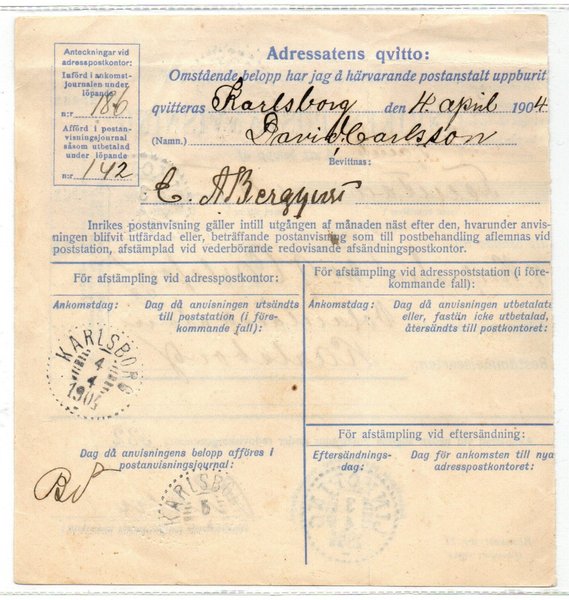 Anteckningar vid
adresspostkontor:
Införd i ankomst-
journalen under
löpande
n:r 186
Afförd i postan-
visningsjournal
såsom utbetalad
under löpande
n:r 142
Adressatens qvitto:
Omstående belopp har jag å härvarande postanstalt uppburit
qvitteras Karlsborg den 4 april 1904.
(Namn.) David Carlsson
Bevittnas:
E. A Bergqvist
Inrikes postanvisning gäller intill utgången af månaden näst efter den, hvarunder anvis-
ningen blifvit utfärdad eller, beträffande postanvisning som till postbehandling aflemnas vid
poststation, afstämplad vid vederbörande redovisande afsändningspostkontor.
För afstämpling vid adresspostkontor:
Ankomstdag:
Dag då anvisningen utsändts
till poststation (i före-
kommande fall):
KARLSBORG
4
4
1904
För afstämpling vid adresspoststation (i före-
kommande fall):
Ankomstdag:
Dag då anvisningen utbetalats
eller, fastän icke utbetalad,
återsändts till postkontoret:
Dag då anvisningens belopp affördes i
postanvisningsjournal:
KARLSBORG
5
För afstämpling vid eftersändning:
Eftersändnings-
dag:
Dag för ankomsten till nya
adresspostkontoret: